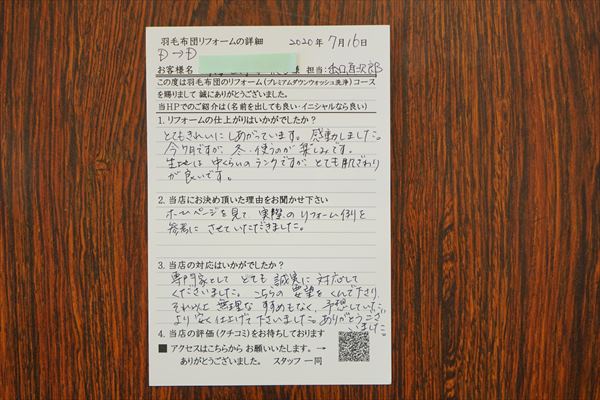 羽毛布団リフォームの詳細 2020年7月16日
D→D
お客様名 担当:
この度は羽毛布団のリフォーム(プレミアムダウンウォッシュ洗浄)コース
を賜りまして 誠にありがとうございました。
当HPでのご紹介は(名前を出しても良い・イニシャルなら良い)
1. リフォームの仕上がりはいかがでしたか?
とてもきれいにしあがっています。感動しました。
今7月ですが、冬、使うのが楽しみです。
生地は中くらいのランクですが、とても肌ざわり
が良いです。
2. 当店にお決め頂いた理由をお聞かせ下さい
ホームページを見て 実際のリフォーム例を
参考に させていただきました。
3. 当店の対応はいかがでしたか?
専門家として とても誠実に対応して
くださいました。こちらの要望をくんで下さり、
それ以上 無理な すすめもなく、予想していた
より 安く仕上げて下さいました。ありがとうござい
ました
4. 当店の評価(クチコミ)をお待ちしております
■ アクセスはこちらから お願いいたします。→
ありがとうございました。 スタッフ 一同